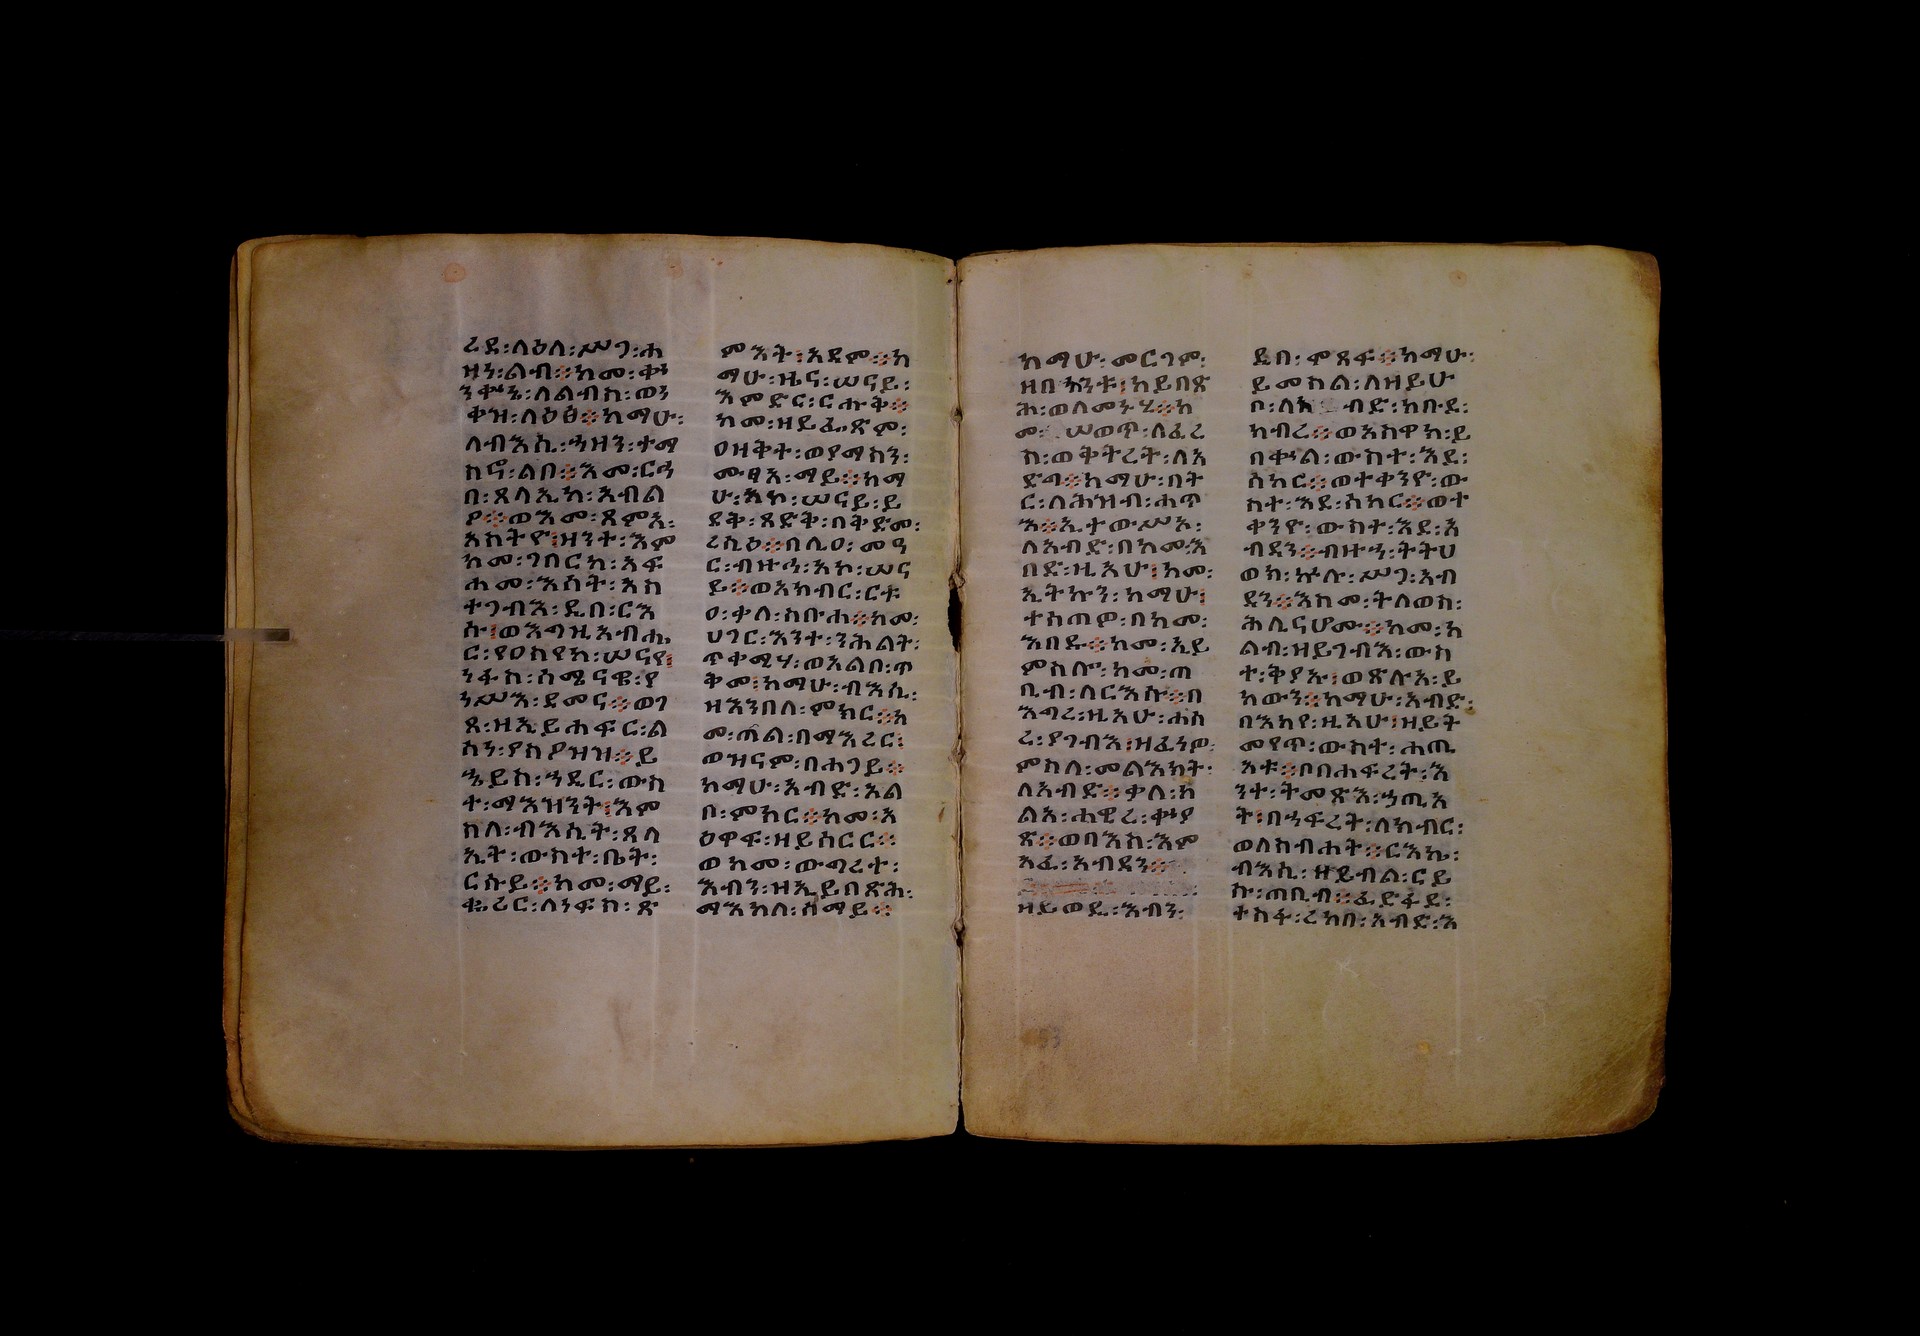 ረደ፡ለዕለ፡ሥጋ፡ሐ
ዘነ፡ልብ።ከመ፡ቍ
ንቍኔ፡ለልብስ፡ወን
ቀዝ፡ለዕፅ።ከማሁ፡
ለብእሲ፡ሓዘን፡ተማ
ከኖ፡ልበ።እመ፡ርኅ
በ፡ጸላኢከ፡አብል
ዖ።ወእመ፡ጸምአ፡
አስትዮ፡ዘንተ፡እም
ከመ፡ገበርከ፡አፍ
ሐመ፡እሳት፡አስ
ተጋብእ፡ዲበ፡ርእ
ሱ፡ወእግዚአብሔ
ር፡የዐስየከ፡ሠናየ፡
ነፋስ፡ሰሜናዌ፡ያ
ነሥእ፡ደመና።ወገ
ጸ፡ዘኢይሐፍር፡ል
ሳን፡ያስዖዝዝ።ይ
ኄይስ፡ኃዲር፡ውስ
ተ፡ማእዝንት፡እም
ስለ፡ብእሲት፡ጸላ
ኢት፡ውስተ፡ቤት፡
ርሱይ።ከመ፡ማይ፡
ቈሪር፡ለነፍስ፡ጽ
ምእት፡አዳም።ከ
ማሁ፡ዜና፡ሠናይ፡
እምድር፡ርሑቅ።
ከመ፡ዘይፈጽም፡
ዐዘቅተ፡ወያማስን፡
ሙፃአ፡ማይ።ከማ
ሁ፡አኮ፡ሠናይ፡ይ
ደቅ፡ጻድቅ፡በቅድመ፡
ረሲዕ።በሊዐ፡መዓ
ር፡ብዙኃ፡አኮ፡ሠና
ይ።ወአክብር፡ርቱ
ዐ፡ቃለ፡ስቡሐ።ከመ፡
ሀገር፡እንተ፡ንሕልት፡
ጥቀሚሃ፡ወአልበ፡ጥ
ቅመ፡ከማሁ፡ብእሲ፡
ዘእንበለ፡ምክር።አ
መ፡ጠል፡በማእረር፡
ወዝናም፡በሐጋይ።
ከማሁ፡አብድ፡አል
ቦ፡ምክር።ከመ፡አ
ዕዋፍ፡ዘይሰርር።
ወከመ፡ውጣረተ፡
እብን፡ዘኢይበጽሕ፡
ማእከለ፡ሰማይ።
ከማሁ፡መርገም፡
ዘበእንቱ፡ኢይበጽ
ሕ፡ወለመኑሂ።ከ
መ፡ሠወጥ፡ለፈረ
ስ፡ወቅትረት፡ለአ
ድግ።ከማሁ፡በት
ር፡ለሕዝብ፡ሐጥ
እ።ኢተውሥእ፡
ለአብድ፡በከመ፡እ
በድ፡ዚአሁ፡ከመ፡
ኢትኩን፡ከማሁ፡
ተሰጠዎ፡በከመ፡
እበዱ።ከመ፡ኢይ
ምሰሎ፡ከመ፡ጠ
ቢብ፡ለርእሱ።በ
እግረ፡ዚአሁ፡ሐሰ
ረ፡ያገብእ፡ዘፈነወ፡
ምስለ፡መልእክት፡
ለአብድ።ቃለ፡ከ
ልአ፡ሐዊረ፡ቍያ
ጽ።ወባእስ፡እም
አፈ፡አብዳን።
ዘይወዲ፡እብን፡
ዲበ፡ሞጸፍ።ከማሁ፡
ይመስል፡ለዘይሁ
ቦ፡ለአብድ፡ስቡደ፡
ክብረ።ወአስዋክ፡ይ
በቍል፡ውስተ፡እደ፡
ሰካር።ወተቀንዮ፡ው
ስተ፡እደ፡ሰካር።ወተ
ቀንዮ፡ውስተ፡እደ፡አ
ብዳን።ብዙኃ፡ትትሀ
ወክ፡ኵሉ፡ሥጋ፡አብ
ዳን።እስመ፡ትለወስ፡
ሕሊናሆሙ።ከመ፡ከ
ልብ፡ዘይገብእ፡ውስ
ተ፡ቅያኡ፡ወጽሉአ፡ይ
ከውን።ከማሁ፡አብድ፡
በእከየ፡ዚአሁ፡ዘይት
መየጥ፡ውስተ፡ሐጢ
አቱ።ቦበሐፍረት፡እ
ንተ፡ትመጽእ፡ኃጢአ
ት፡በኃፍረት፡ለክብር፡
ወለስብሐት።ርእኩ፡
ብእሲ፡ዘይብል፡ርእ
ሱ፡ጠቢብ።ፈድፋደ፡
ተስፋ፡ረከበ፡አብድ፡እ